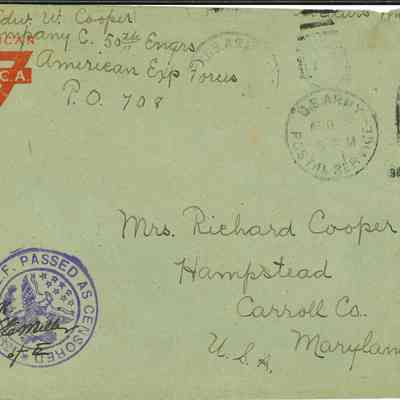 W. Cooper
Company C. 50th Engrs
American Exp Forces
P.O. 708
U.S. ARMY
POSTAL SERVICE
Mrs. Richard Cooper
Hampstead
Carroll Co.
U.S.A. Maryland
PASSED AS CENSORED